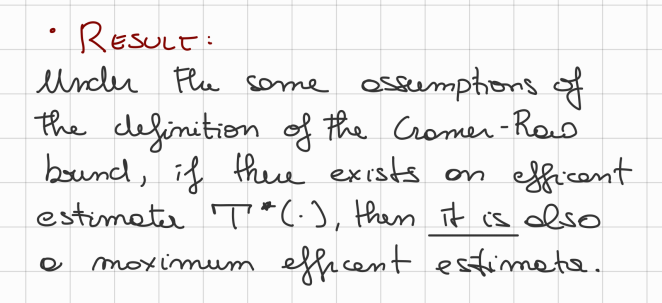 • RESULT:
Under the same assumptions of
the definition of the Cramer-Rao
bound, if there exists an efficent
estimator T*(·), then it is also
a maximum efficent estimate.